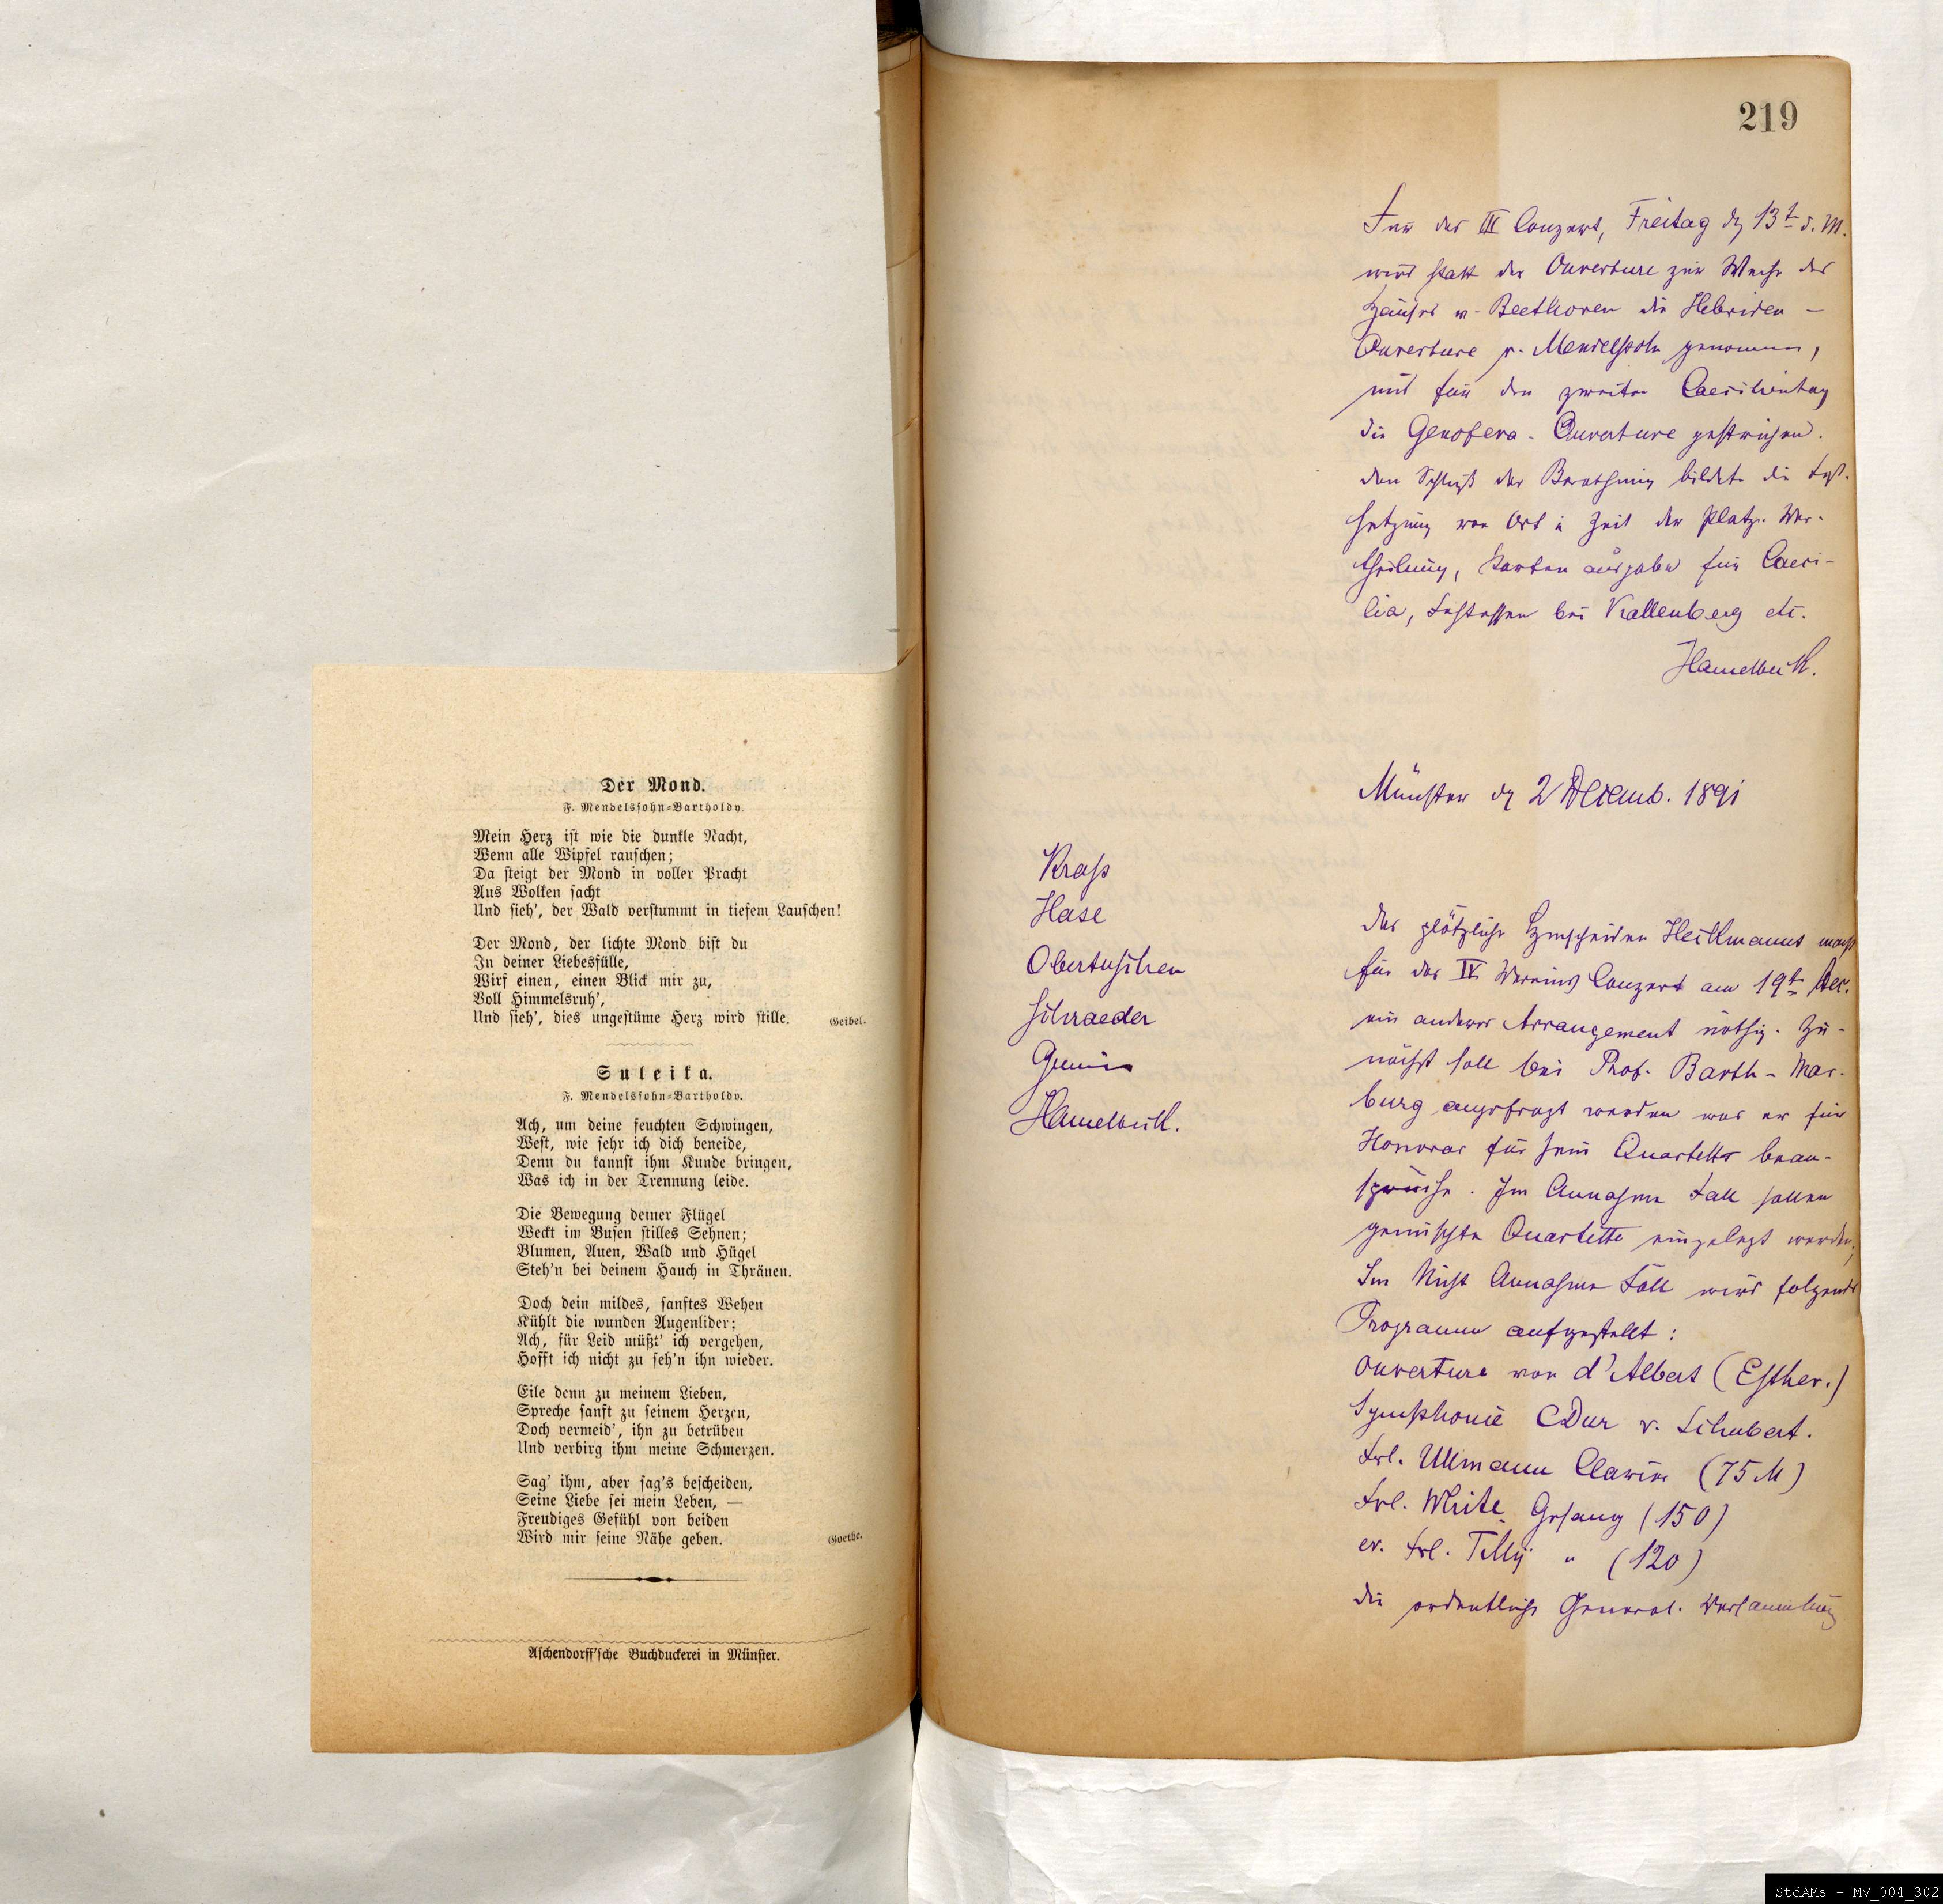 Der Mond.
F. Mendelssohn-Bartholdy.
Mein Herz ist wie die dunkle Nacht,
Wenn alle Wipfel rauschen;
Da steigt der Mond in voller Pracht
Aus Wolken sacht
Und sieh', der Wald verstummt in tiefem Lauschen!
Der Mond, der lichte Mond bist du
In deiner Liebesfülle,
Wirf einen, einen Blick mir zu,
Voll Himmelsruh',
Und sieh', dies ungestüme Herz wird stille.
Geibel.
Suleika.
F. Mendelssohn-Bartholdy.
Ach, um deine feuchten Schwingen,
West, wie sehr ich dich beneide,
Denn du kannst ihm Kunde bringen,
Was ich in der Trennung leide.
Die Bewegung deiner Flügel
Weckt im Busen stilles Sehnen;
Blumen, Auen, Wald und Hügel
Steh'n bei deinem Hauch in Thränen.
Doch dein mildes, sanftes Wehen
Kühlt die wunden Augenlider;
Ach, für Leid müßt' ich vergehen,
Hofft ich nicht zu seh'n ihn wieder.
Eile denn zu meinem Lieben,
Spreche sanft zu seinem Herzen,
Doch vermeid', ihn zu betrüben
Und verbirg ihm meine Schmerzen.
Sag' ihm, aber sag's bescheiden,
Seine Liebe sei mein Leben, —
Freudiges Gefühl von beiden
Wird mir seine Nähe geben.
Goethe.
Aschendorff'sche Buchduckerei in Münster.
219
Fuer das III Conzert, Freitag d. 13t d. M.
wird statt der Ouverture zur Weihe des
Hauses v. Beethoven die Hebriden -
Ouverture v. Mendelssohn genommen,
und für den zweiten Caecilientag
die Genofeva - Ouverture gestrichen.
Den Schluß der Berathung bildete die Fest-
setzung von Ort u Zeit der Platz-Ver-
theilung, Karten ausgabe für Caeci-
lia, Festessen bei Kallenberg etc.
Hamelbeck.
Münster d. 2 Decemb. 1891
Krass
Hase
Obertuschen
Schraeder
Hamelbeck.
Das plötzliche Hinscheiden Heckmanns macht
für das IV Vereins Conzert am 19t Dec.
ein anderes Arrangement nöthig. Zu-
nächst soll bei Prof. Barth - Mar-
burg angefragt werden was er für
Honorar für sein Quartett bean-
spruche. Im Annahme Fall sollen
gemischte Quartette eingelegt werden,
Im Nicht Annahme Fall wird folgendes
Programm aufgestellt:
Ouverture von d'Albert (Esther.)
Symphonie CDur v. Schubert.
Frl. Ullmann Clavier (75 M)
Frl. White Gesang (150)
ev. Frl. Tilly " (120)
die ordentliche General-Versammlung
StdAMs - MV_004_302